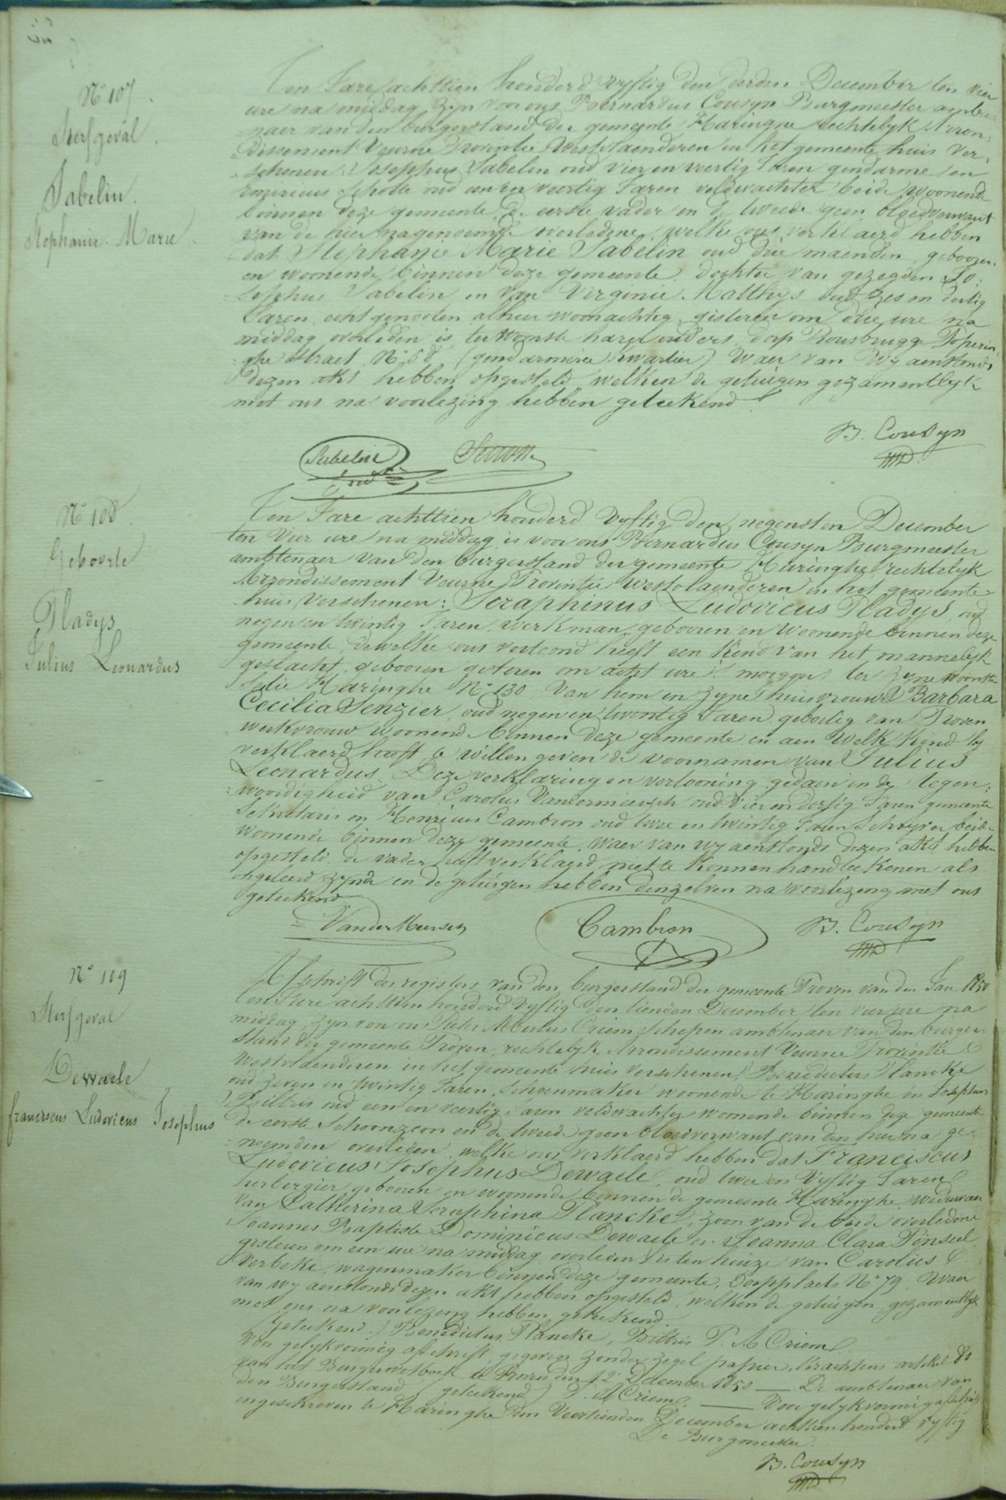 N° 107.
Sterfgeval.
Sabelin.
Stephanie Marie.
Ten Jare achttien honderd vyftig den derden December ten vier
ure na middag, zyn voor ons Bernardus Cousyn Burgmeester ambte-
naer van den burgerstand der gemeente Haringhe rechtelyk Arron-
dissement Veurne Provintie Westvlaenderen in het gemeente huis ver-
schenen: Josephus Sabelin oud vier en veertig Jaren gendarme en
oud en veertig Jaren veldwachter beide woonende
binnen deze gemeente, de eerste vader en de tweede geen bloedverwant
van de hier nagenoemde overledene, welke ons verklaerd hebben
dat Stephanie Marie Sabelin oud drie maenden, geboren
en woonende binnen deze gemeente, dochter van gezegden Jo-
sephus Sabelin en van Virginie Matthys oud zes en dertig
Jaren, echtgenooten alhier woonachtig, gisteren om drie ure na
middag overleden is ter woonste harer ouders, dorp Rousbrugge Poperin-
ghe straet, N° 58 (gendarmerie kwartier) Waer van wy aenstonds
dezen akt hebben opgesteld, welken de getuigen gezamentlyk
met ons na voorlezing hebben geteekend.
B. Cousyn
Sabelin
N° 108.
Geboorte
Pladys
Julius Leonardus
Ten Jare achttien honderd vyftig den negensten December
ten vier ure na middag is voor ons Bernardus Cousyn Burgmeester
ambtenaer van den burgerstand der gemeente Haringhe rechtelyk
Arrondissement Veurne Provintie Westvlaenderen in het gemeente
huis verschenen: Seraphinus Ludovicus Pladys, oud
negen en twintig Jaren, werkman, geboren en woonende binnen deze
gemeente, dewelke ons vertoond heeft een kind van het mannelyk
geslacht, geboren gisteren om acht ure 's morgens ter zyne woonste
Haringhe N° 130 van hem en zyne huisvrouwe Barbara
Cecilia Senzier, oud negen en twintig Jaren, geboortig van Proven
werkvrouw woonend binnen deze gemeente en aen welk kind hy
verklaerd heeft te willen geven de voornamen van Julius
Leonardus. Deze verklaring en vertooning gedaen in de tegen-
woordigheid van Carolus Vandermeersch oud vier en dertig Jaren gemeente
Secretaris en Henricus Cambron oud twee en twintig Jaren Schryver beide
woonende binnen deze gemeente. Waer van wy aenstonds dezen akt hebben
opgesteld, de vader heeft verklaerd niet te kunnen handteekenen als
ongeleerd zynde en de getuigen hebben denzelven na voorlezing met ons
geteekend
VanderMeersch
Cambron
B. Cousyn
N° 109
Sterfgeval
Dewaele
franciscus Ludovicus Josephus
Afschrift des registers van den burgerstand der gemeente Proven van den Jare 1850
Ten Jare achttien honderd vyftig den tienden December ten vier ure na
middag, zyn voor ons Pieter Albertus Criem Schepen ambtenaer van den burger-
stand der gemeente Proven, rechtelyk Arrondissement Veurne Provintie
Westvlaenderen in het gemeente huis verschenen: Benedictus Plancke
oud zeven en twintig Jaren, Schoenmaker woonende te Haringhe en Josephus
Billiau oud een en veertig Jaren veldwachter woonende binnen deze gemeente
de eerste Schoonzoon en de tweede geen bloedverwant van den hier na ge-
noemden overleden, welke ons verklaerd hebben dat Franciscus
Ludovicus Josephus Dewaele, oud twee en vyftig Jaren
herbergier geboren en woonende binnen de gemeente Haringhe, weduwaer
van Catherina Seraphina Plancke, zoon van de beide overledene
Joannes Baptiste Dominicus Dewaele en Joanna Clara Pinseel
gisteren om een ure na middag overleden is ten huize van Carolus
Verbeke, wagenmaker binnen deze gemeente, Dorpplaets N° 79. Waer
van wy aenstonds dezen akt hebben opgesteld, welken de getuigen gezamentlyk
met ons na voorlezing hebben geteekend.
(geteekend) Benedictus Plancke, P. A. Criem
Voor gelykvormig afschrift, gegeven zonder zegel papier, krachtens artikel 80
van het Burgerwetboek te Proven den 12 December 1850 — De ambtenaer van
den Burgerstand (geteekend) P. A. Criem — Voor gelykvormig afschrift
ingeschreven te Haringhe den Veertienden December achttien honderd vyftig
De Burgmeester
B. Cousyn